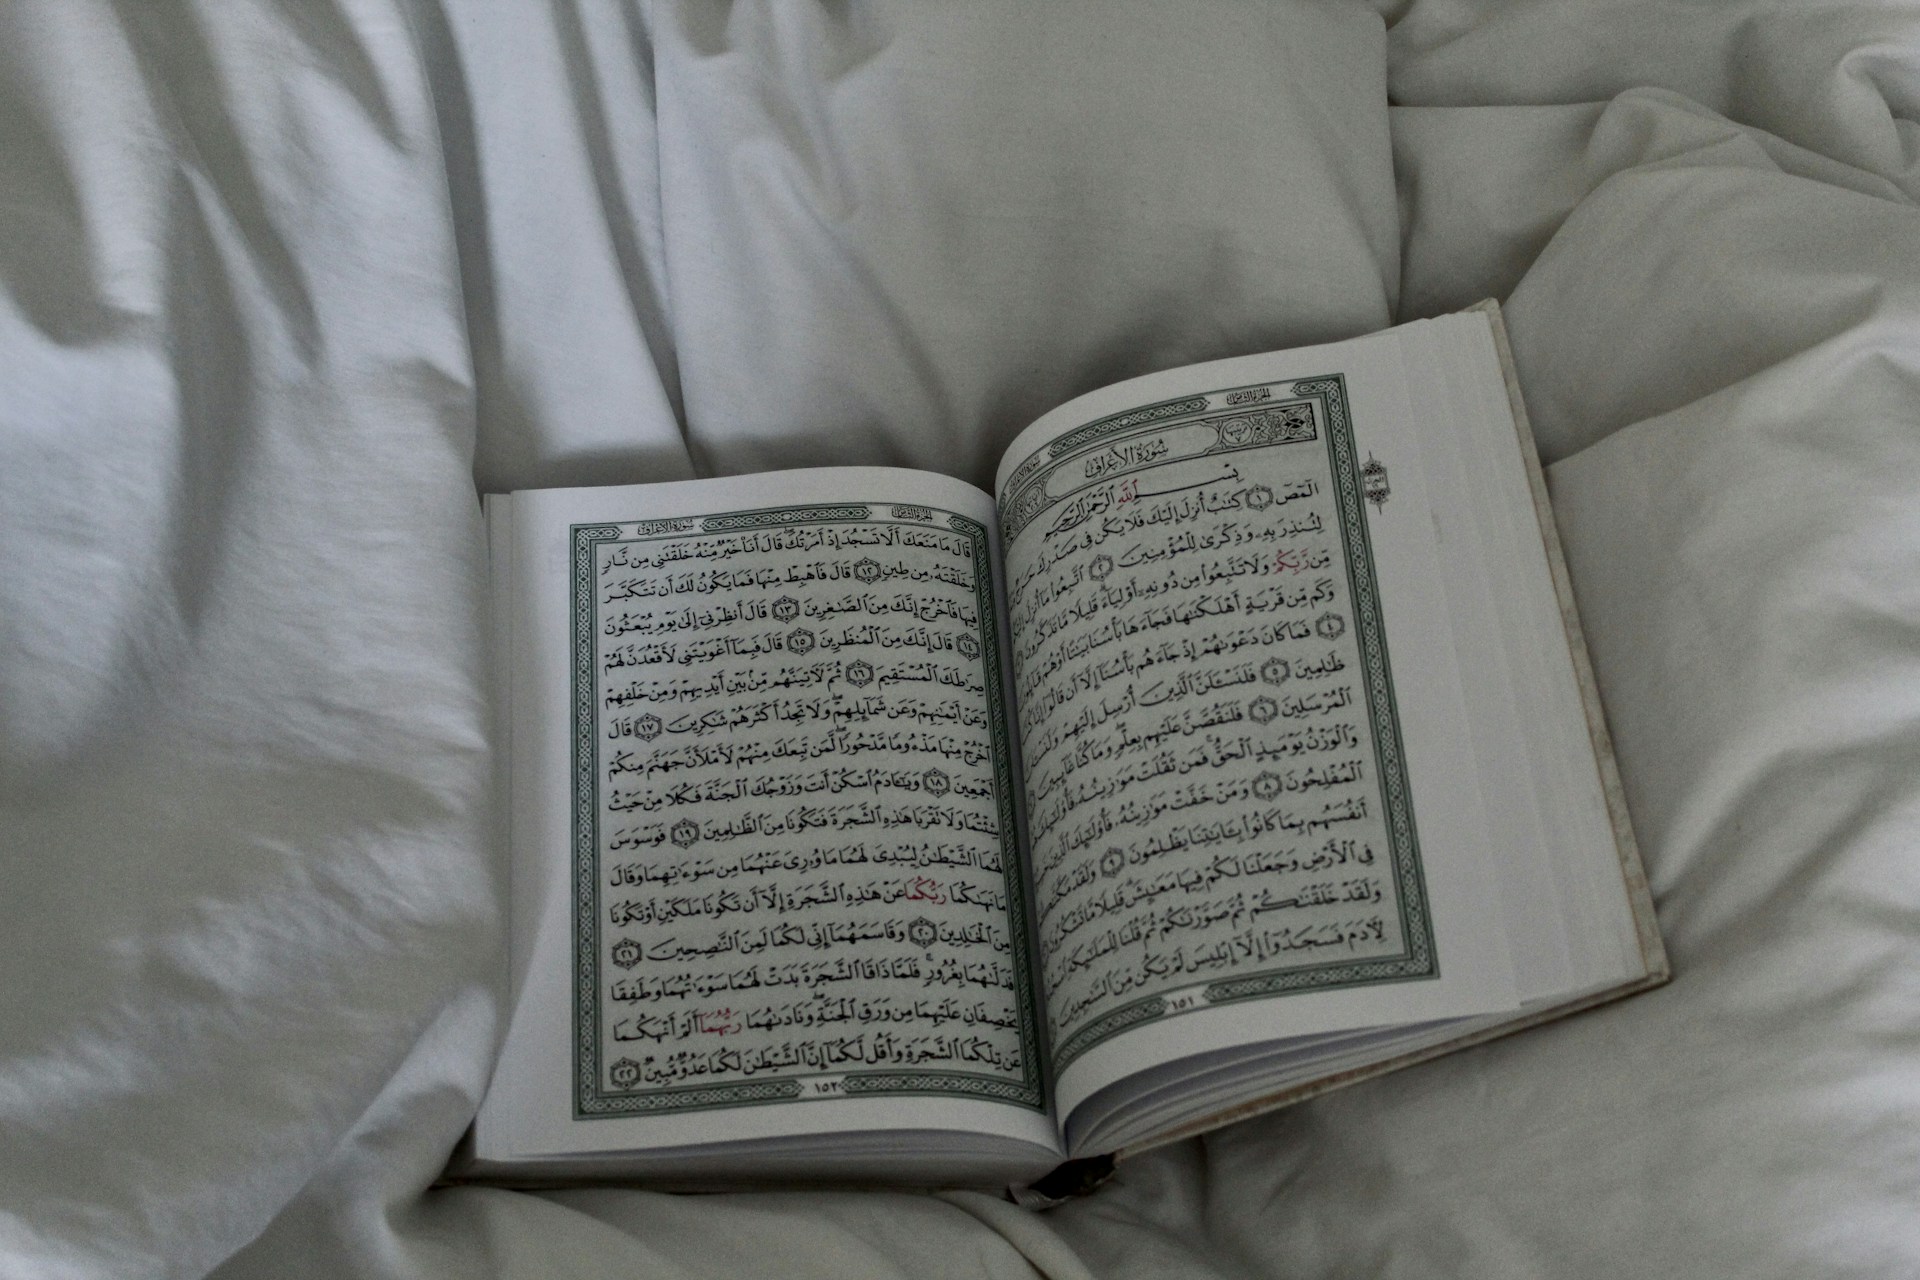 الجزء الثامن سورة الأعراف
سُورَةُ الأَعْرَافِ
بِسْمِ ٱللَّهِ ٱلرَّحْمَٰنِ ٱلرَّحِيمِ
الٓمٓصٓ ١ كِتَٰبٌ أُنزِلَ إِلَيْكَ فَلَا يَكُن فِى صَدْرِكَ حَرَجٌ
لِتُنذِرَ بِهِۦ وَذِكْرَىٰ لِلْمُؤْمِنِينَ ٢ ٱتَّبِعُوا۟ مَآ أُنزِلَ
مِّن رَّبِّكُمْ وَلَا تَتَّبِعُوا۟ مِن دُونِهِۦٓ أَوْلِيَآءَ قَلِيلًا مَّا تَذَكَّرُونَ
وَكَم مِّن قَرْيَةٍ أَهْلَكْنَٰهَا فَجَآءَهَا بَأْسُنَا بَيَٰتًا أَوْ هُمْ قَآئِلُونَ
٤ فَمَا كَانَ دَعْوَىٰهُمْ إِذْ جَآءَهُم بَأْسُنَآ إِلَّآ أَن قَالُوٓا۟ إِنَّا
ظَٰلِمِينَ ٥ فَلَنَسْـَٔلَنَّ ٱلَّذِينَ أُرْسِلَ إِلَيْهِمْ وَلَنَسْـَٔلَنَّ
ٱلْمُرْسَلِينَ ٦ فَلَنَقُصَّنَّ عَلَيْهِم بِعِلْمٍ وَمَا كُنَّا غَآئِبِينَ
وَٱلْوَزْنُ يَوْمَئِذٍ ٱلْحَقُّ فَمَن ثَقُلَتْ مَوَٰزِينُهُۥ فَأُو۟لَٰٓئِكَ هُمُ
ٱلْمُفْلِحُونَ ٨ وَمَنْ خَفَّتْ مَوَٰزِينُهُۥ فَأُو۟لَٰٓئِكَ ٱلَّذِينَ خَسِرُوٓا۟
أَنفُسَهُم بِمَا كَانُوا۟ بِـَٔايَٰتِنَا يَظْلِمُونَ ٩ وَلَقَدْ مَكَّنَّٰكُمْ
فِى ٱلْأَرْضِ وَجَعَلْنَا لَكُمْ فِيهَا مَعَٰيِشَ قَلِيلًا مَّا تَشْكُرُونَ
وَلَقَدْ خَلَقْنَٰكُمْ ثُمَّ صَوَّرْنَٰكُمْ ثُمَّ قُلْنَا لِلْمَلَٰٓئِكَةِ ٱسْجُدُوا۟
لِءَادَمَ فَسَجَدُوٓا۟ إِلَّآ إِبْلِيسَ لَمْ يَكُن مِّنَ ٱلسَّٰجِدِينَ
١٥١
الجزء الثامن سورة الأعراف
قَالَ مَا مَنَعَكَ أَلَّا تَسْجُدَ إِذْ أَمَرْتُكَ قَالَ أَنَا۠ خَيْرٌ مِّنْهُ خَلَقْتَنِى مِن نَّارٍ
وَخَلَقْتَهُۥ مِن طِينٍ ١٢ قَالَ فَٱهْبِطْ مِنْهَا فَمَا يَكُونُ لَكَ أَن تَتَكَبَّرَ
فِيهَا فَٱخْرُجْ إِنَّكَ مِنَ ٱلصَّٰغِرِينَ ١٣ قَالَ أَنظِرْنِىٓ إِلَىٰ يَوْمِ يُبْعَثُونَ
١٤ قَالَ إِنَّكَ مِنَ ٱلْمُنظَرِينَ ١٥ قَالَ فَبِمَآ أَغْوَيْتَنِى لَأَقْعُدَنَّ لَهُمْ
صِرَٰطَكَ ٱلْمُسْتَقِيمَ ١٦ ثُمَّ لَءَاتِيَنَّهُم مِّنۢ بَيْنِ أَيْدِيهِمْ وَمِنْ خَلْفِهِمْ
وَعَنْ أَيْمَٰنِهِمْ وَعَن شَمَآئِلِهِمْ وَلَا تَجِدُ أَكْثَرَهُمْ شَٰكِرِينَ ١٧ قَالَ
ٱخْرُجْ مِنْهَا مَذْءُومًا مَّدْحُورًا لَّمَن تَبِعَكَ مِنْهُمْ لَأَمْلَأَنَّ جَهَنَّمَ مِنكُمْ
أَجْمَعِينَ ١٨ وَيَٰٓـَٔادَمُ ٱسْكُنْ أَنتَ وَزَوْجُكَ ٱلْجَنَّةَ فَكُلَا مِنْ حَيْثُ
شِئْتُمَا وَلَا تَقْرَبَا هَٰذِهِ ٱلشَّجَرَةَ فَتَكُونَا مِنَ ٱلظَّٰلِمِينَ ١٩ فَوَسْوَسَ
لَهُمَا ٱلشَّيْطَٰنُ لِيُبْدِىَ لَهُمَا مَا وُۥرِىَ عَنْهُمَا مِن سَوْءَٰتِهِمَا وَقَالَ
مَا نَهَىٰكُمَا رَبُّكُمَا عَنْ هَٰذِهِ ٱلشَّجَرَةِ إِلَّآ أَن تَكُونَا مَلَكَيْنِ أَوْ تَكُونَا
مِنَ ٱلْخَٰلِدِينَ ٢٠ وَقَاسَمَهُمَآ إِنِّى لَكُمَا لَمِنَ ٱلنَّٰصِحِينَ ٢١
فَدَلَّىٰهُمَا بِغُرُورٍ فَلَمَّا ذَاقَا ٱلشَّجَرَةَ بَدَتْ لَهُمَا سَوْءَٰتُهُمَا وَطَفِقَا
يَخْصِفَانِ عَلَيْهِمَا مِن وَرَقِ ٱلْجَنَّةِ وَنَادَىٰهُمَا رَبُّهُمَآ أَلَمْ أَنْهَكُمَا
عَن تِلْكُمَا ٱلشَّجَرَةِ وَأَقُل لَّكُمَآ إِنَّ ٱلشَّيْطَٰنَ لَكُمَا عَدُوٌّ مُّبِينٌ ٢٢
١٥٢